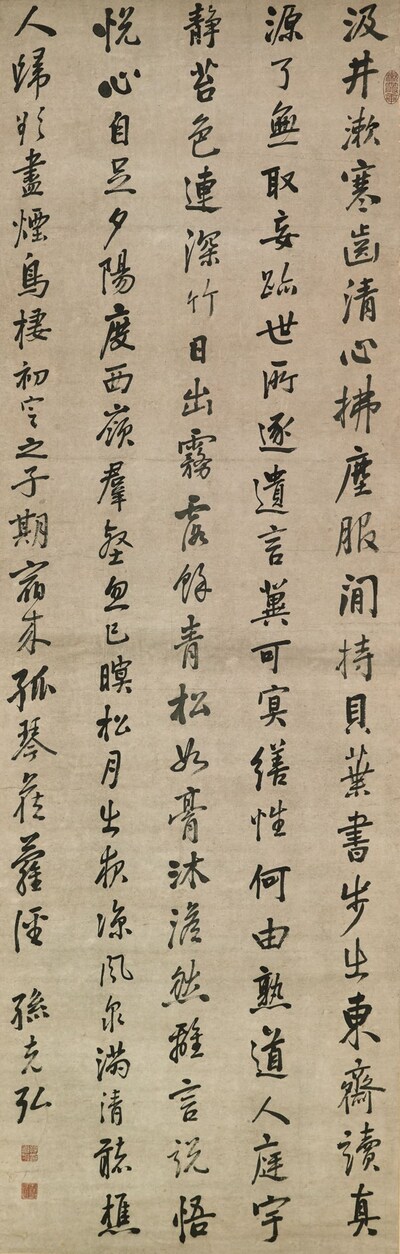 汲井漱寒齒清心拂塵服閒持貝葉書步出東齋讀真
源了無取妄跡世所逐遺言冀可冥繕性何由熟道人庭宇
靜苔色連深竹日出霧露餘青松如膏沐澹然離言說悟
悅心自足夕陽度西嶺羣壑忽已暝松月生夜涼風泉滿清聽樵
人歸欲盡煙鳥棲初定之子期宿來孤琴候蘿徑 孫克弘